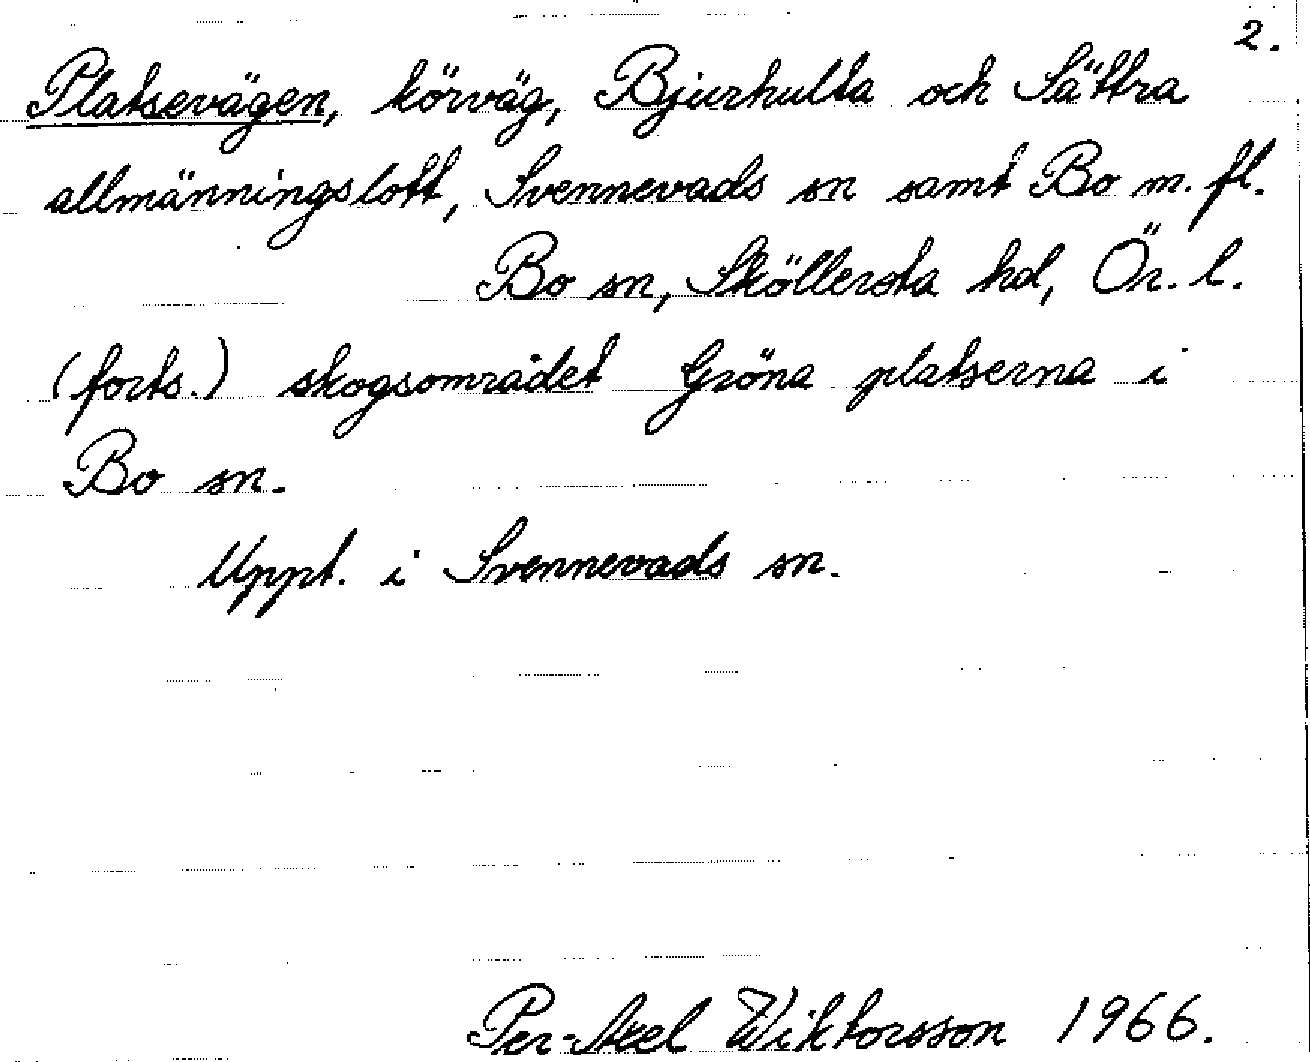 2.
Platsevägen, körväg, Bjurhulta och Sättra
allmänningslott, Svennevads sn samt Bo m. fl.
Bo sn, Sköllersta hd, Ör. l.
(forts.) skogsområdet Gröna platserna i
Bo sn.
Uppt. i Svennevads sn.
Per-Axel Wiktorsson 1966.